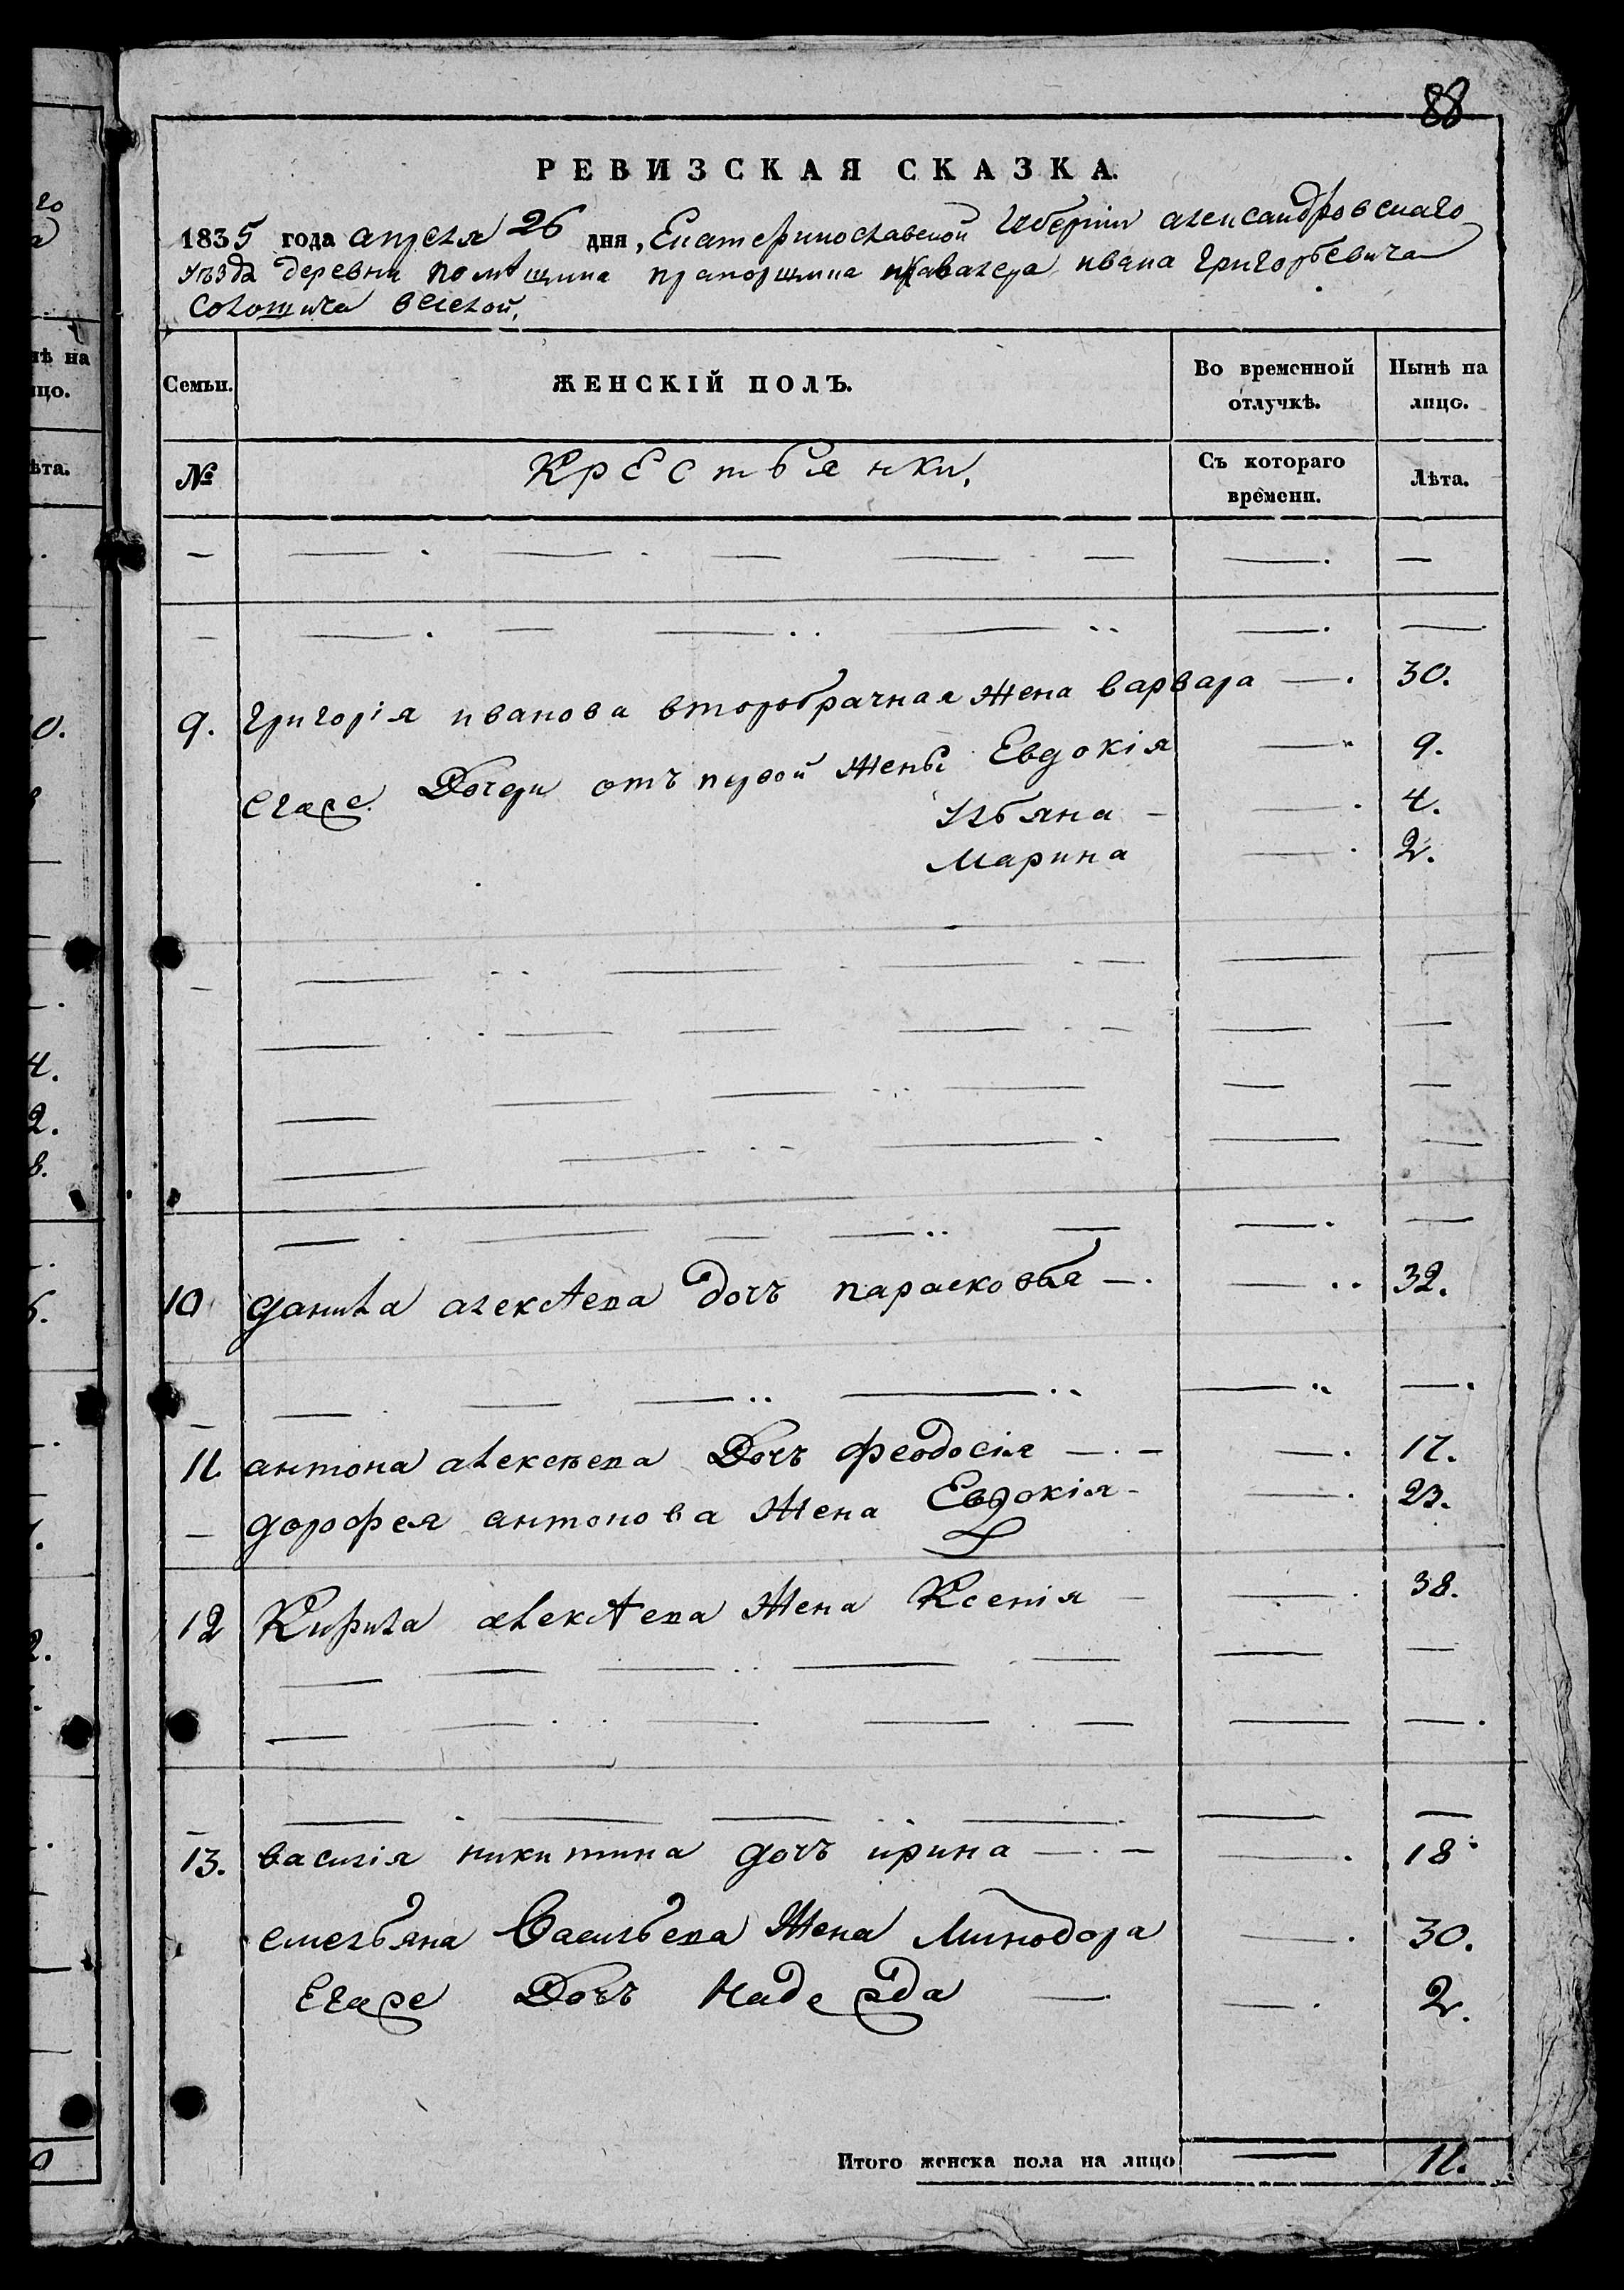 88
РЕВИЗСКАЯ СКАЗКА.
1835 года апреля 26 дня, Екатеринославской губернии александровскаго
уѣзда деревни помѣщика прапорщика икавалера ивана григорьевича
веселой.
Семьи. ЖЕНСКІЙ ПОЛЪ. Во временной отлучкѣ. Нынѣ на лицо.
№ Крестьянки. Съ котораго времени. Лѣта.
9. григорія иванова второбрачная жена варвара — . 30.
Егоже Дочери отъ первой жены Евдокія — 9.
ульяна — 4.
марина — 2.
10 данила алексѣева дочъ парасковья — . 32.
11 антона алексѣева Дочъ феодосія — . — 17.
— дорофея антонова жена Евдокія — 23.
12 Кирила алексѣева жена Ксенія — 38.
13. василія никитина дочъ ирина — . — 18.
емельяна Васильева жена Минодора — 30.
Егоже Дочъ надежда — 2.
Итого женска пола на лицо — 11.